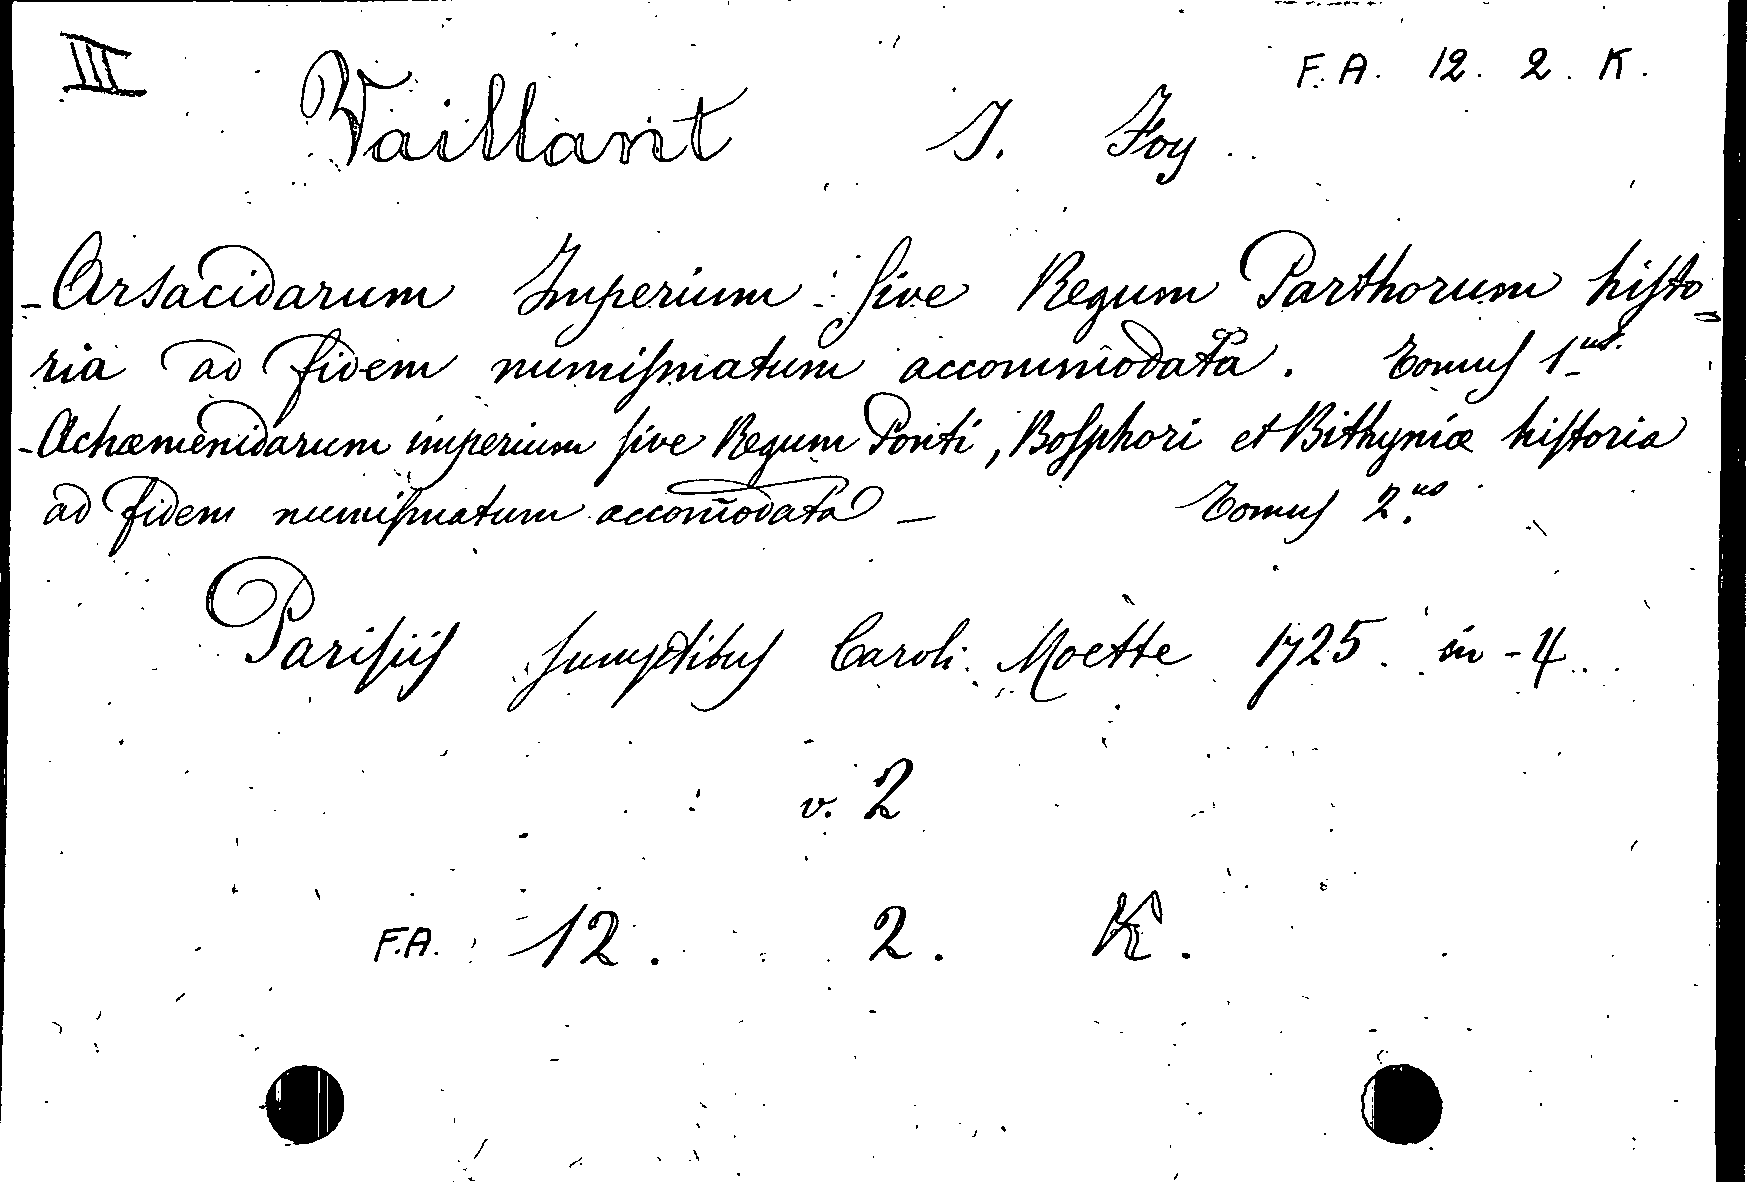 III
F. A. 12. 2. K.
Vaillant J. Foy
- Arsacidarum Imperium : sive Regum Parthorum histo-
ria ad fidem numismatum accommodata. Tomus 1us.
- Achæmenidarum imperium sive Regum Ponti, Bosphori et Bithyniæ historia
ad fidem numismatum accom̄odata — Tomus 2us.
Parisiis sumptibus Caroli Moette 1725. in-4.
v. 2
F.A. 12. 2. K.